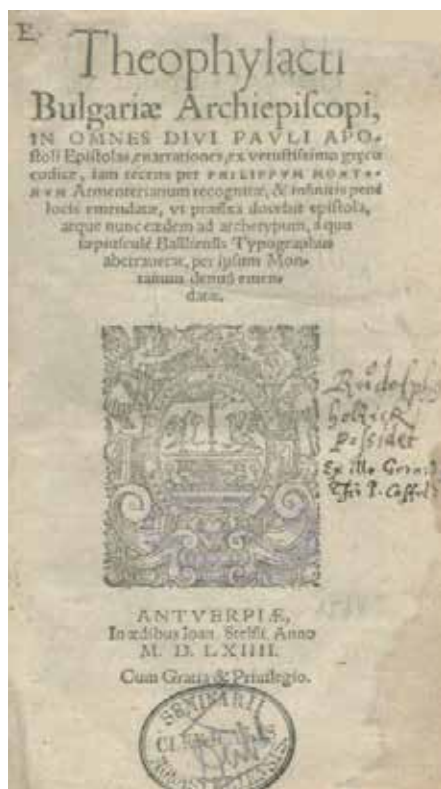 E.
Theophylacti
Bulgariæ Archiepiſcopi,
IN OMNES DIVI PAVLI APO-
ſtoli Epiſtolas, enarrationes, ex vetuſtiſsimo græco
codice, iam recens per PHILIPPVM MONTA-
NVM Armenterianum recognitæ, & infinitis penè
locis emendatæ, vt præfixa docebit epiſtola,
atque nunc eædem ad archetypum, à quo
ſæpiuſculè Baſilienſis Typographus
aberrauerat, per ipſum Mon-
tanum denuò emen-
datæ.
Rudolph
possidet
Ex illo
ANTVERPIÆ,
In ædibus Ioan. Steelſii. Anno
M. D. LXIIII.
Cum Gratia & Priuilegio.
SEMINARII